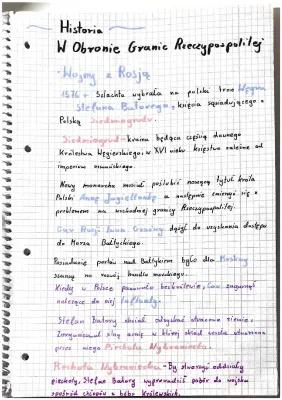 Historia
W Obronie Granic Rzeczypospolitej
- Wojny z Rosją
1576 r. Szlachta wybrała na polski tron Węgra
Stefana Batorego, księcia sąsiadującego z
Polską Siedmiogrodu.
Siedmiogród - kraina będąca częścią dawnego
Królestwa Węgierskiego, w XVI wieku księstwo zależne od
imperium osmańskiego.
Nowy monarcha musiał poślubić noszącą tytuł króla
Polski Annę Jagiellonkę a następnie zmierzyć się z
problemem na wschodniej granicy Rzeczypospolitej.
Car Rosji Iwan Groźny dążył do uzyskania dostępu
do Morza Bałtyckiego.
Posiadanie portów nad Bałtykiem było dla Moskwy
szansą na rozwój handlu morskiego.
Kiedy w Polsce panowało bezkrólewie, Car zagarnął
należące do niej Inflanty.
Stefan Batory chciał odzyskać utracone ziemie.
Zorganizował silną armię w której skład weszła utworzona
przez niego Piechota Wybraniecka.
Piechota Wybraniecka - By stworzyć oddziały
piechoty, Stefan Batory wyprowadził pobór do wojska
spośród chłopów z dóbr królewskich.